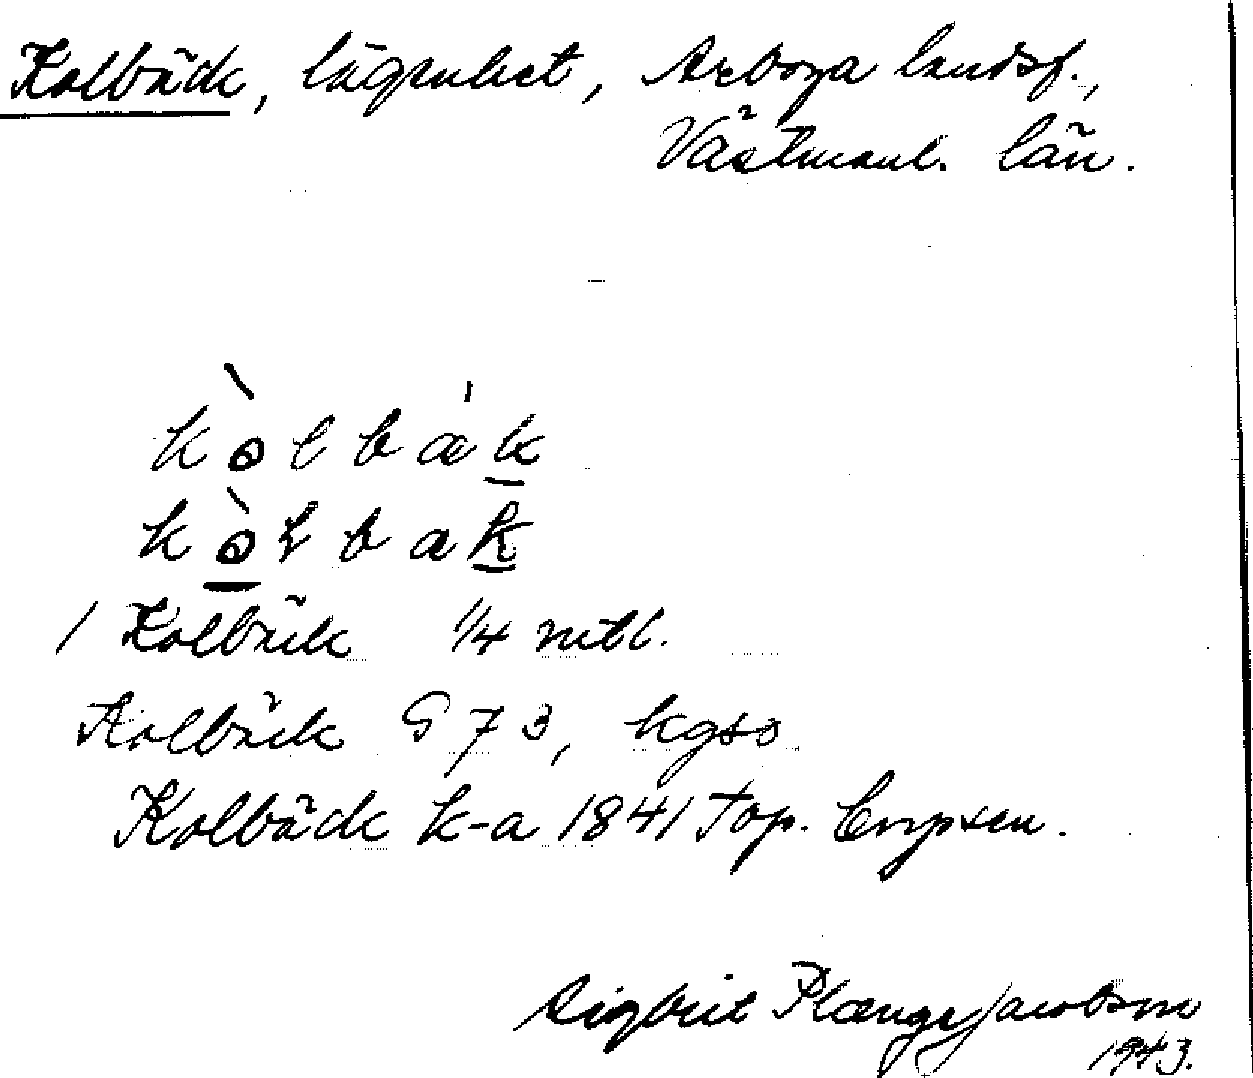 Kolbäck, lägenhet, Arboga landsf.,
Västmanl. län.
kòlbák
kòlbak
1 Kolbäck 1/4 mtl.
Kolbäck G 73, kgso
Kolbäck k-a 1841 Top. Corpsen.
Sigbrit Plænge Jacobson
1943.